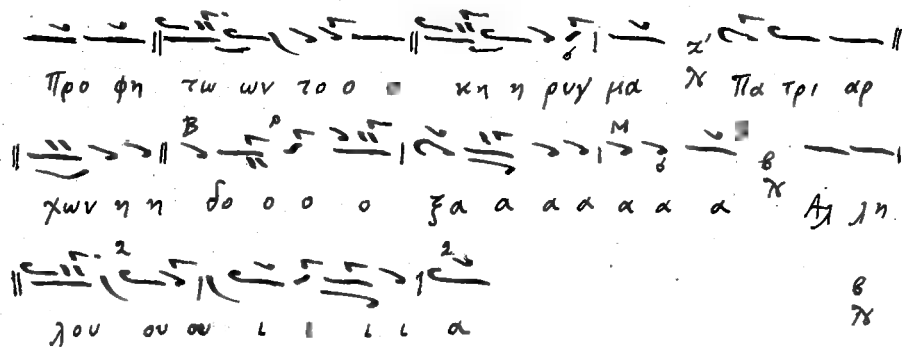 Προ φη τω ων το ο ο κη η ρυγ μα Πα τρι αρ
χων η η δο ο ο ο ξα α α α α α α Αλ λη
λου ου ου ι ι ι ι α